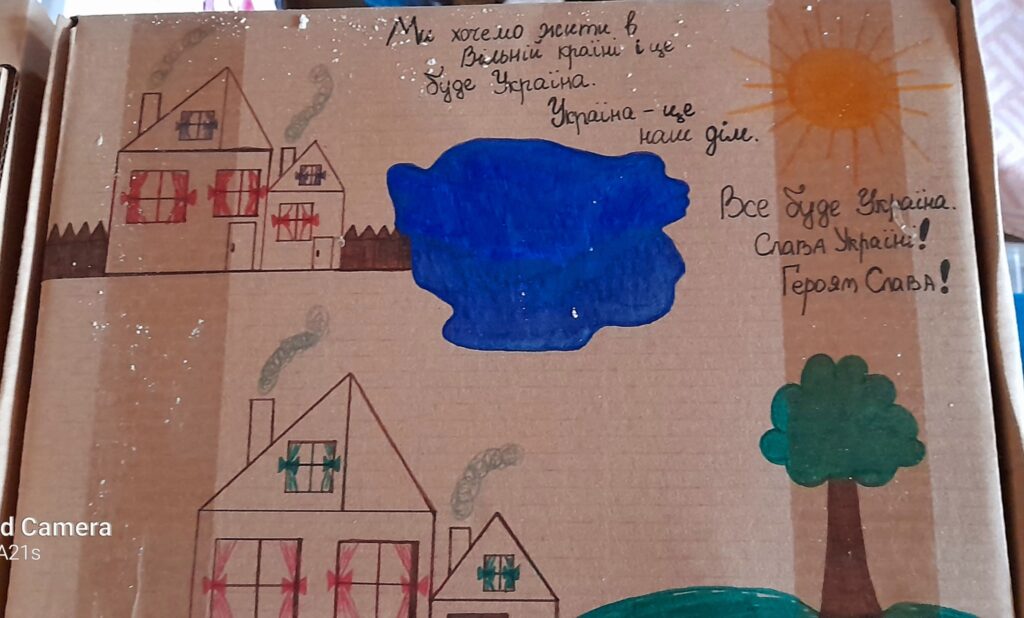 Ми хочемо жити в
Вільній країні і це
буде Україна.
Україна - це
наш дім.
Все буде Україна.
Слава Україні!
Героям Слава!
d Camera
A21s